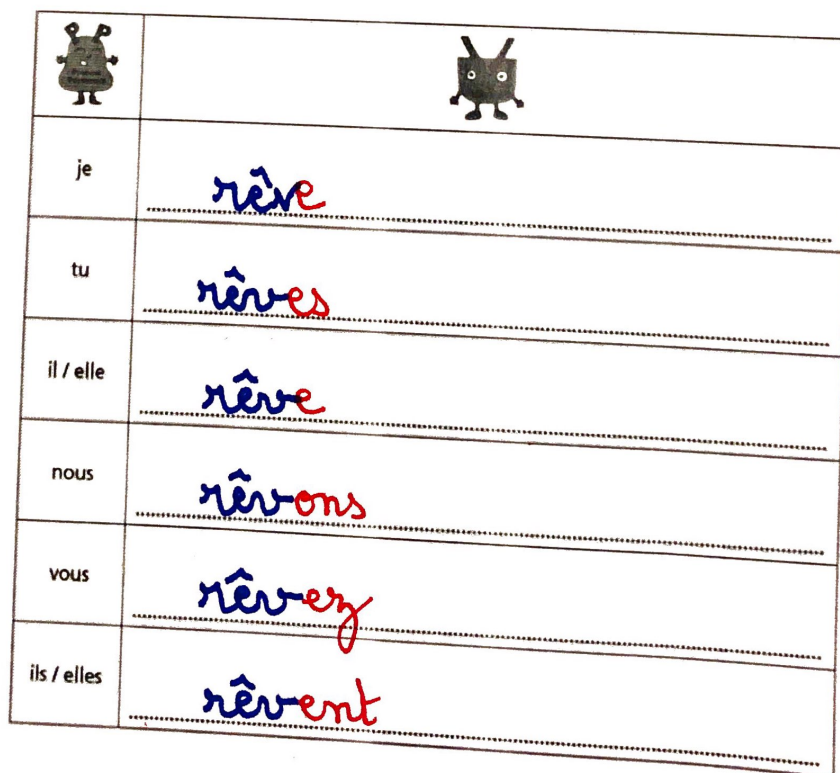 je rêve
tu rêves
il / elle rêve
nous rêvons
vous rêvez
ils / elles rêvent